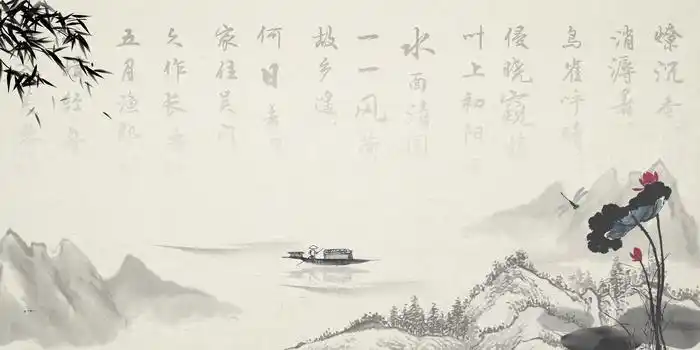 燎沉香
消溽暑
鸟雀呼晴
侵晓窥檐
叶上初阳
水面清圆
一一风荷
故乡遥
何日
家住吴门
久作长
五月渔郎
轻舟